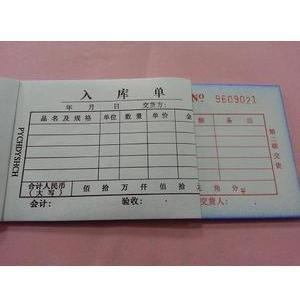 入库单
№ 9609021
年 月 日 交货方:
品名及规格 单位 数量 单价 金
额 备注
合计人民币 佰 拾 万 仟 佰 拾 元 角 分
(大写)
会计: 验收: 交货人:
PYCHDYSHCH
第二联交货